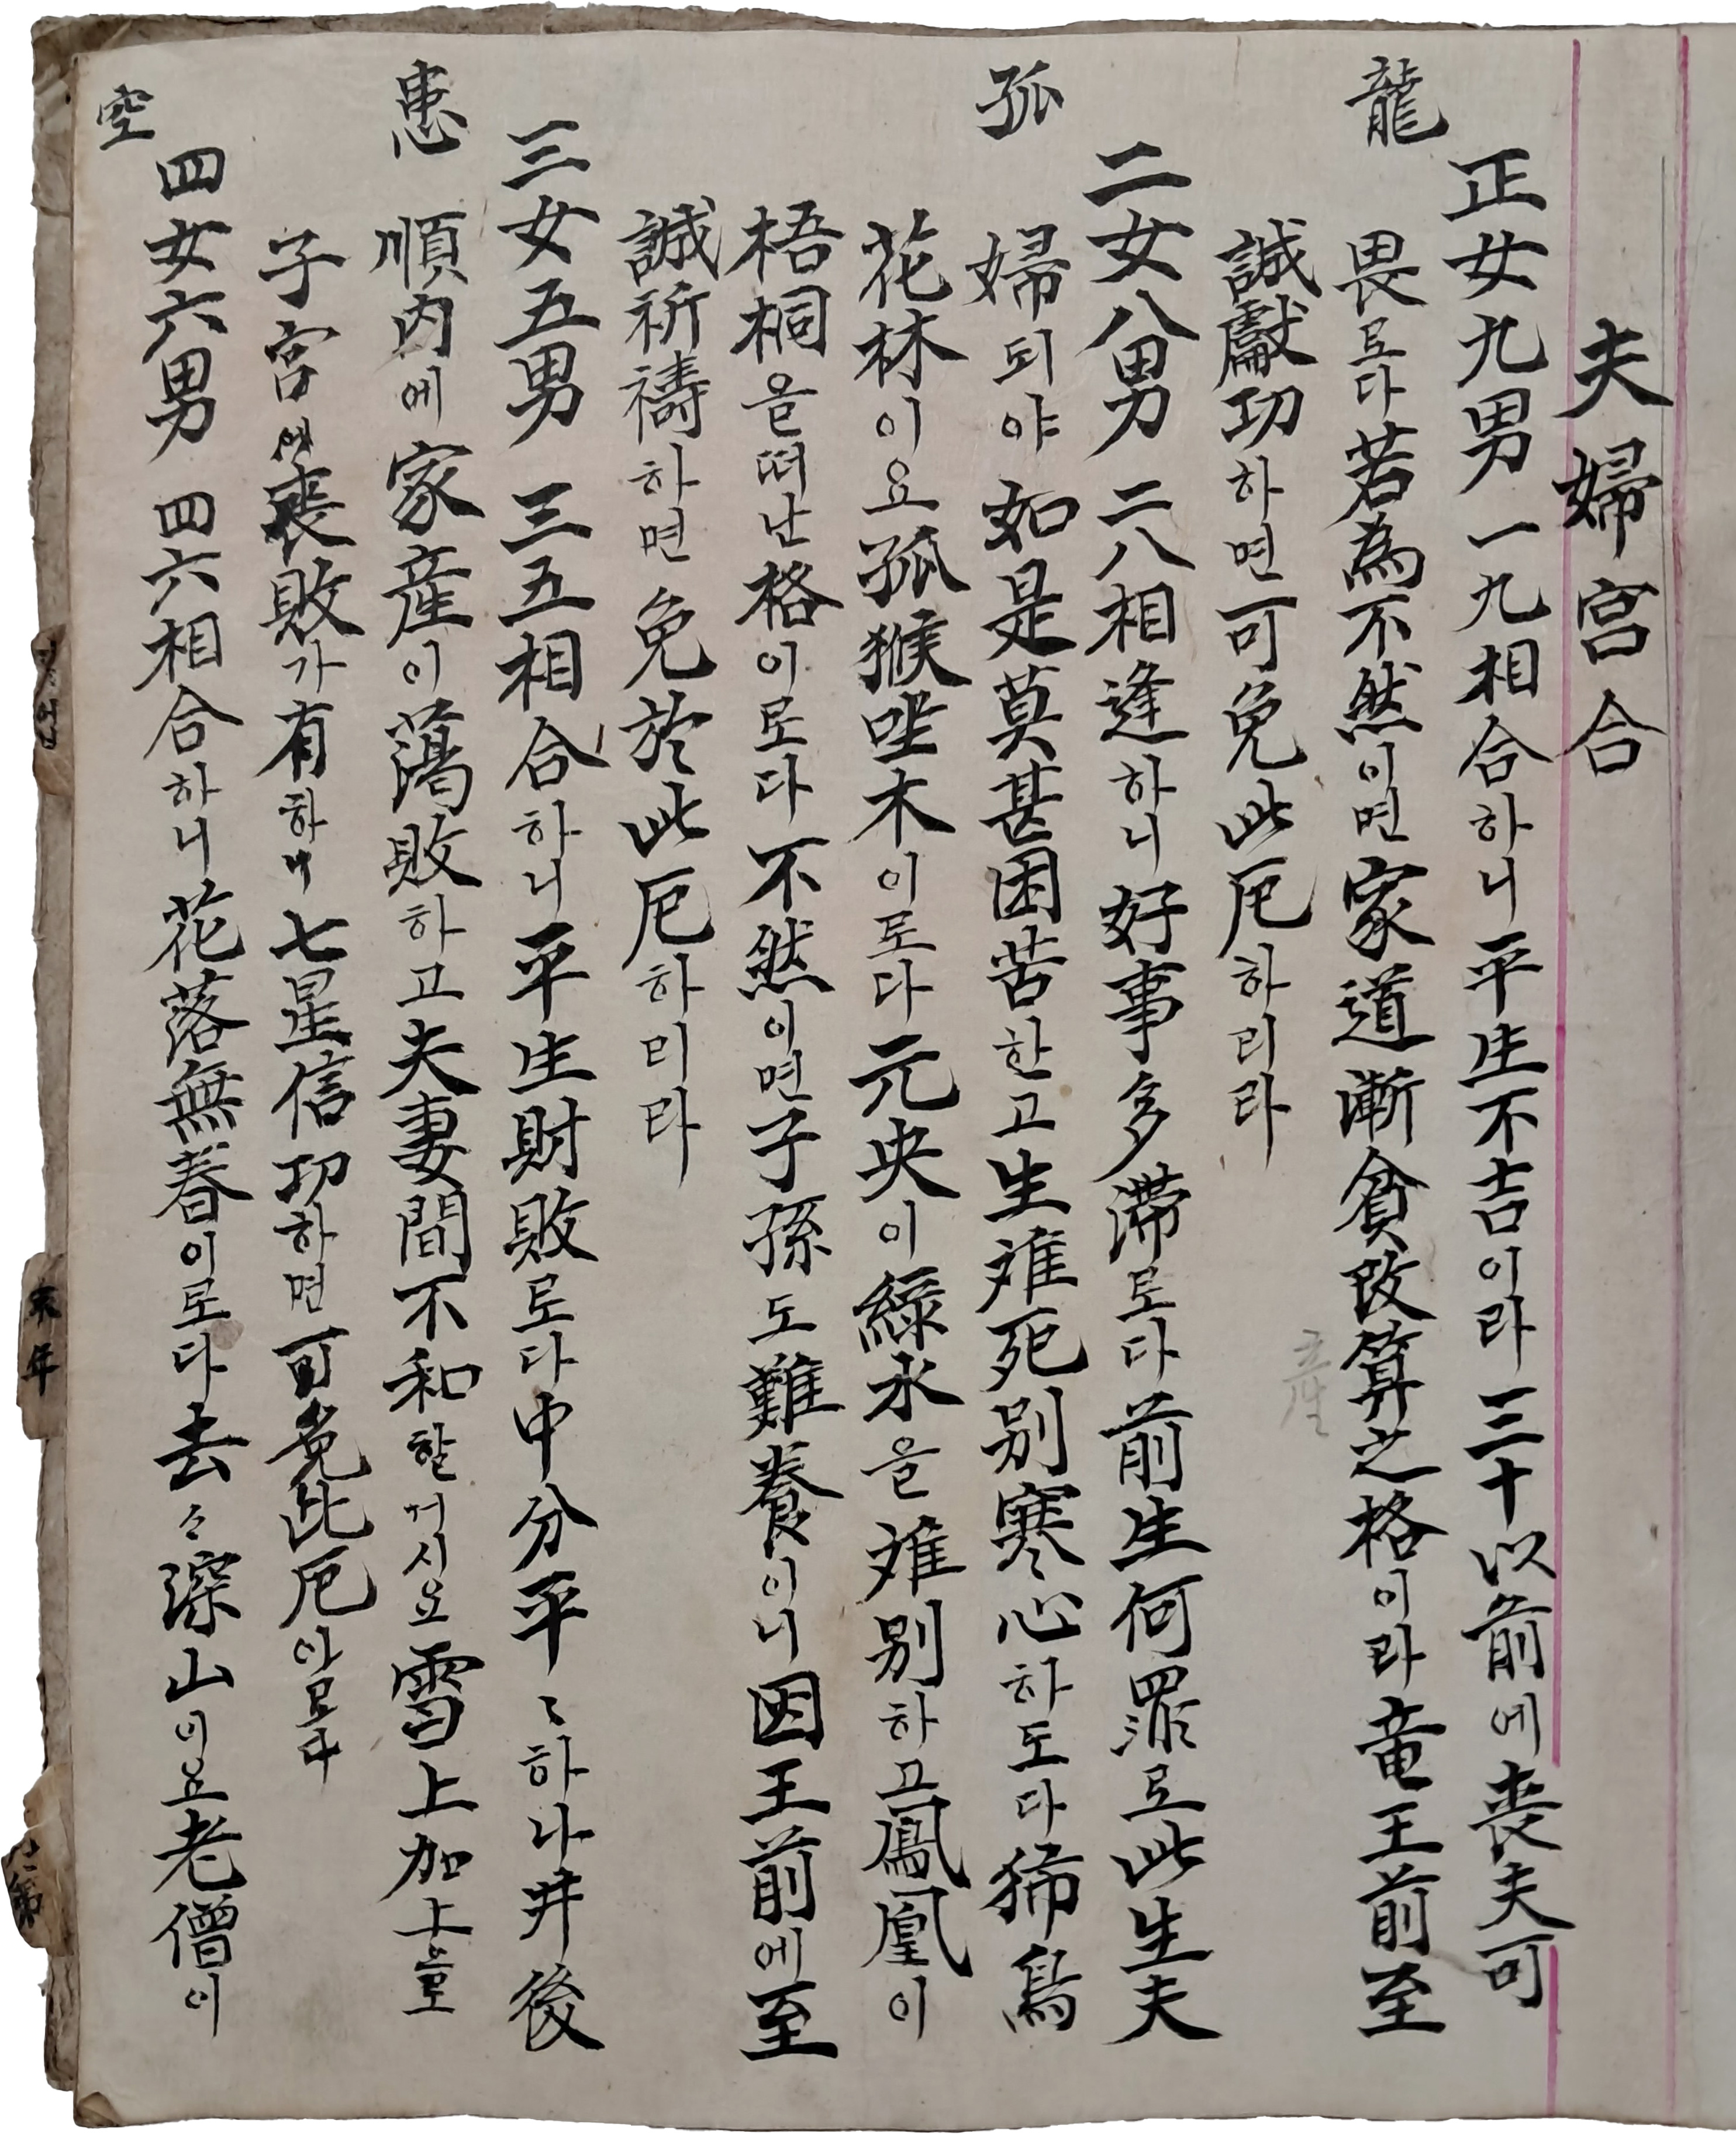 夫婦宮合
正女九男 一九相合하니 平生不吉이라 三十以前에 喪夫可
龍
畏로다 若為不然이면 家道漸貧改算之格이라 竜王前至
誠獻功하면 可免此厄하리라
二女八男 二八相逢하니 好事多滯로다 前生何罪로 此生夫
孤
婦되야 如是莫甚困苦한고 生难死别寒心하도다 㹷鳥
花林이요 孤猴坐木이로다 元央이 綠水을 难别하고 鳳凰이
梧桐을 떠난 格이로다 不然이면 子孫도 難養이니 因王前에 至
誠祈禱하면 免於此厄하리라
三女五男 三五相合하니 平生財敗로다 中分平〻하나 井後
患
順內에 家産이 蕩敗하고 夫妻間不和할거시요 雪上加上으로
子宮에 喪敗가 有하니 七星信功하면 可免此厄이로다
空
四女六男 四六相合하니 花落無春이로다 去々深山이요 老僧이
産
末年